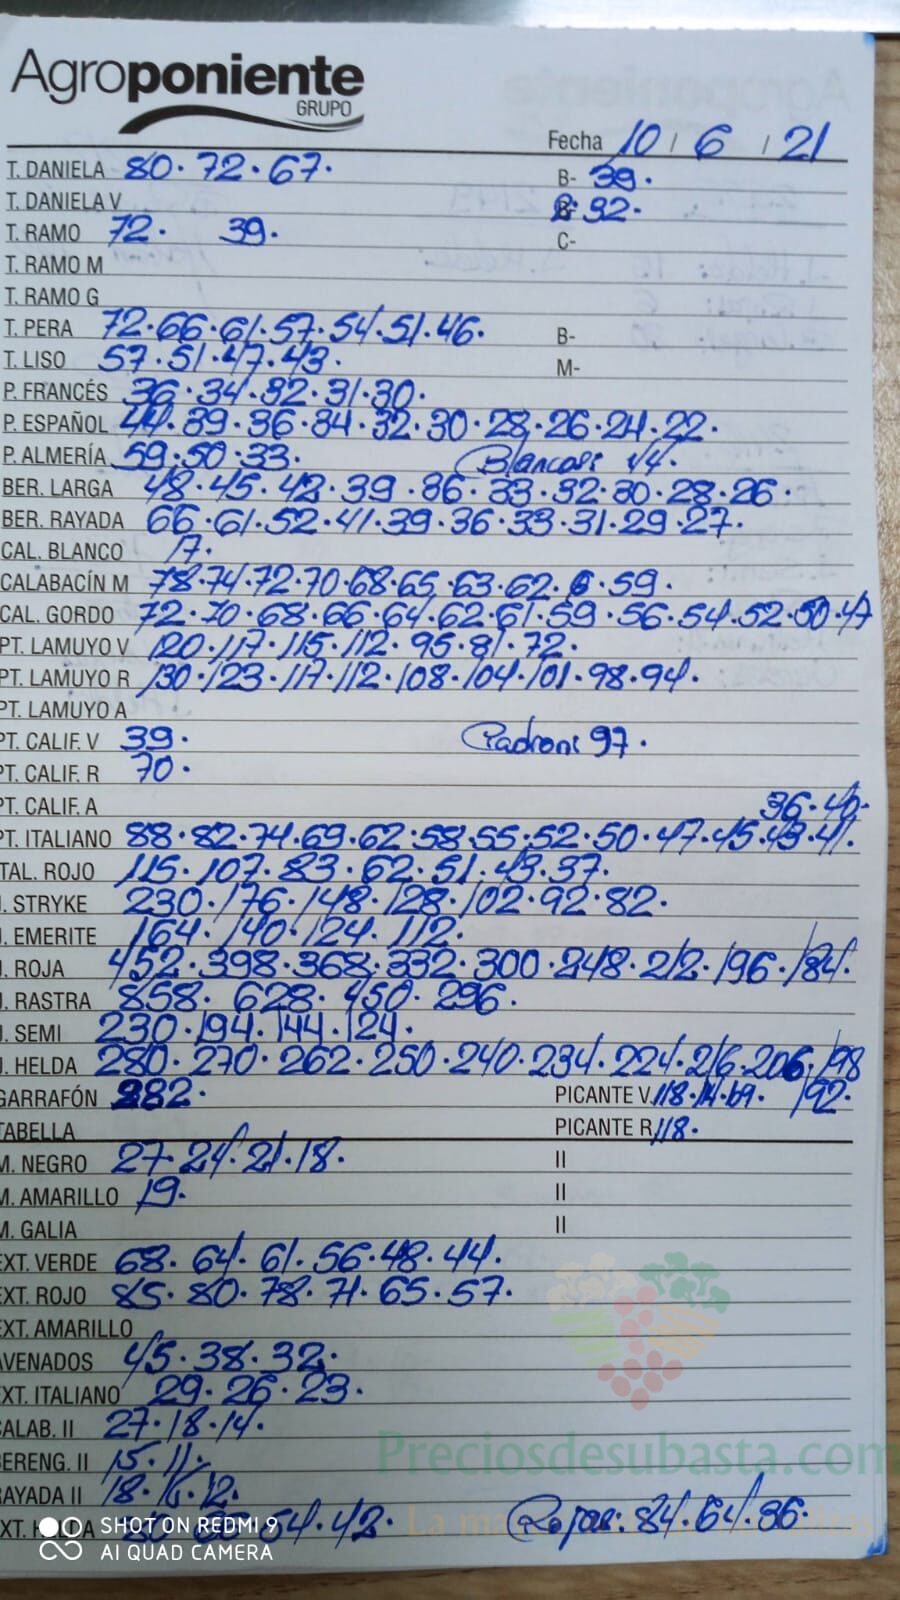 Agroponiente
GRUPO
Fecha 10 / 6 / 21
T. DANIELA 80. 72. 67. B- 39.
T. DANIELA V 32.
T. RAMO 72. 39. C-
T. RAMO M
T. RAMO G
T. PERA 72. 66. 61. 57. 54. 51. 46. B-
T. LISO 57. 51. 47. 43. M-
P. FRANCÉS 36. 34. 32. 31. 30.
P. ESPAÑOL 44. 39. 36. 34. 32. 30. 28. 26. 24. 22.
P. ALMERÍA 59. 50. 33. Blancasi 14.
BER. LARGA 48. 45. 42. 39. 36. 33. 32. 30. 28. 26.
BER. RAYADA 66. 61. 52. 41. 39. 36. 33. 31. 29. 27.
CAL. BLANCO 17.
CALABACÍN M 78. 74. 72. 70. 68. 65. 63. 62. 59.
CAL. GORDO 72. 70. 68. 66. 64. 62. 61. 59. 56. 54. 52. 50. 47
PT. LAMUYO V 120. 117. 115. 112. 95. 81. 72.
PT. LAMUYO R 130. 123. 117. 112. 108. 104. 101. 98. 94.
PT. LAMUYO A
PT. CALIF. V 39. Padroni 97.
PT. CALIF. R 70.
PT. CALIF. A 36. 40.
PT. ITALIANO 88. 82. 74. 69. 62. 58. 55. 52. 50. 47. 45. 43. 41.
TAL. ROJO 115. 107. 83. 62. 51. 43. 37.
J. STRYKE 230. 176. 148. 128. 102. 92. 82.
J. EMERITE 164. 140. 124. 112.
J. ROJA 452. 398. 368. 332. 300. 248. 212. 196. 184.
J. RASTRA 858. 628. 450. 296.
J. SEMI 230. 194. 144. 124.
J. HELDA 280. 270. 262. 250. 240. 234. 224. 216. 206. 198
GARRAFÓN 282. PICANTE V. 118. 114. 69. 192.
TABELLA PICANTE R 118.
M. NEGRO 27. 24. 21. 18. II
M. AMARILLO 19. II
M. GALIA II
EXT. VERDE 68. 64. 61. 56. 48. 44.
EXT. ROJO 85. 80. 78. 71. 65. 57.
EXT. AMARILLO
AVENADOS 45. 38. 32.
EXT. ITALIANO 29. 26. 23.
CALAB. II 27. 18. 14.
BERENG. II 15. 11.
RAYADA II 18. 16. 12.
EXT. HELDA 54. 42. Rojas: 84. 64. 36.
Preciosdesubasta.com
SHOT ON REDMI 9
AI QUAD CAMERA